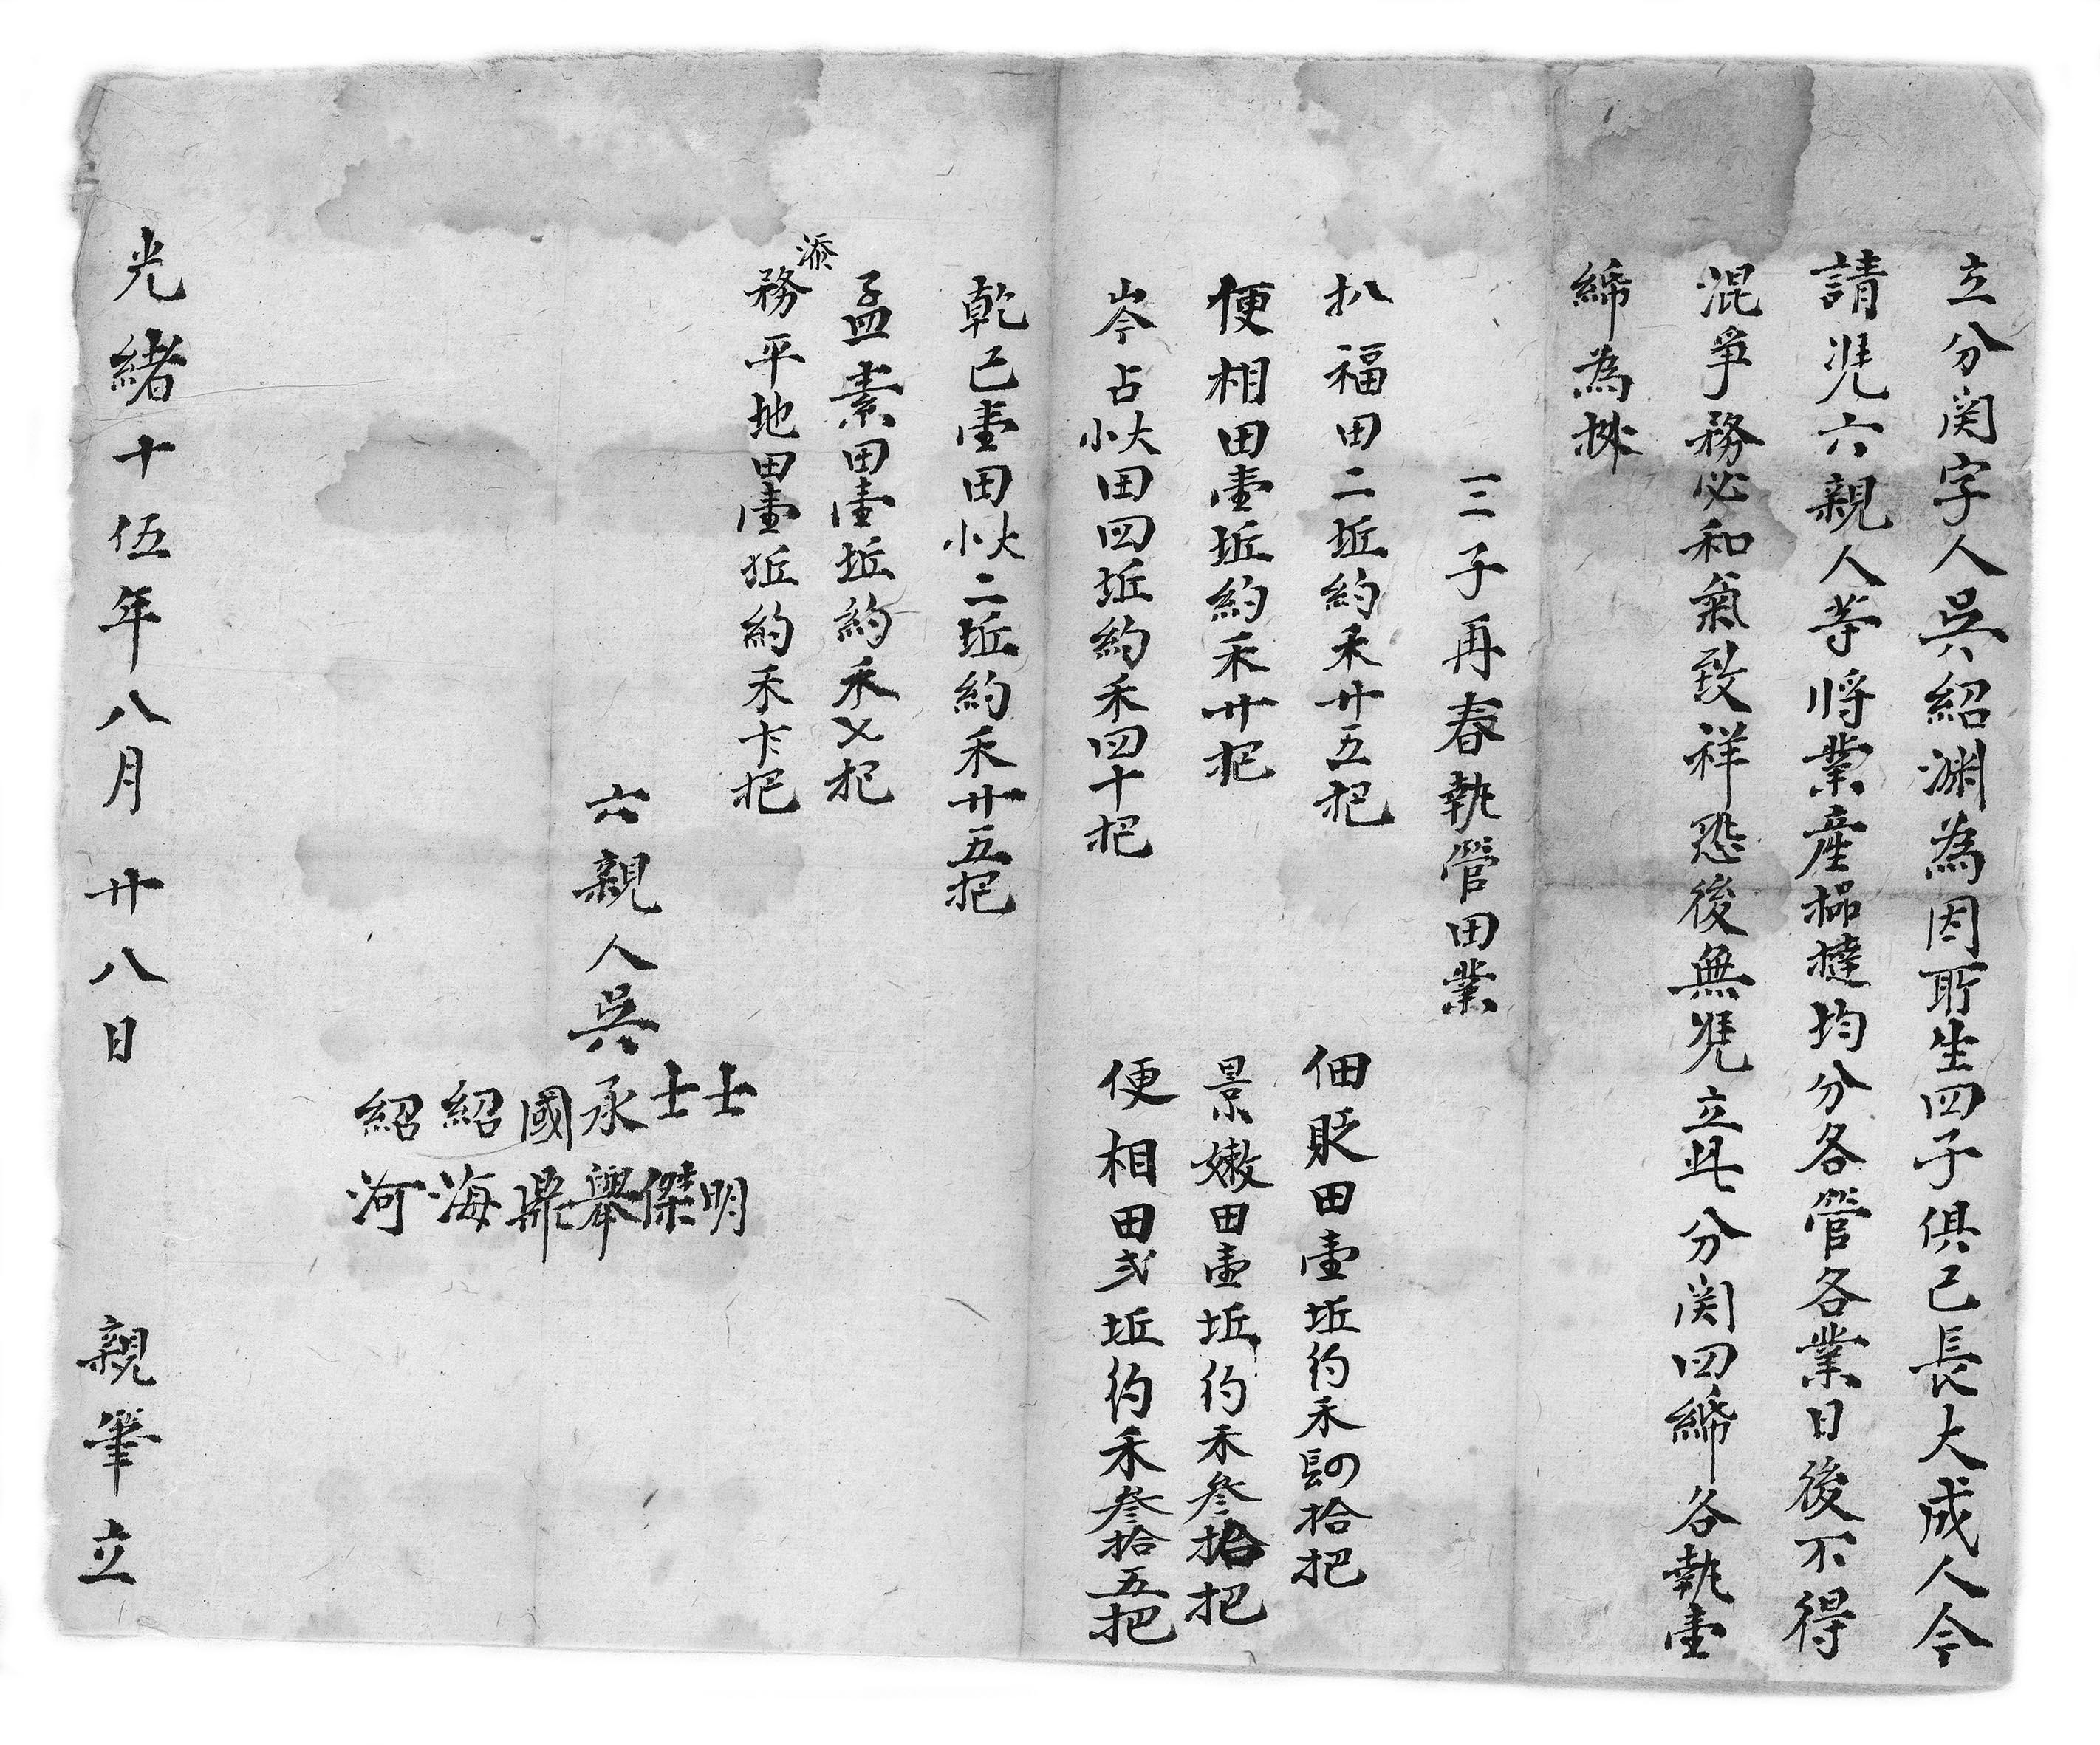 立分関字人吳紹渊為因所生四子俱已長大成人今
請凴六親人等將業產品撻均分各管各業日後不得
混爭務必和氣致祥恐後無凴立此分関四締各執壹
締為㨿
三子再春執管田業
扒福田二坵約禾廿五把
佃貶田壹坵約禾肆拾把
便相田壹坵約禾廿把
景嫩田壹坵約禾叁拾把
岑占大小田四坵約禾四十把
便相田弍坵約禾叁拾五把
乾己壹田大小二坵約禾廿五把
孟素田壹坵約禾乂把
添
務平地田壹坵約禾卡把
六親人吳
士明
士傑
承舉
國鼎
紹海
紹河
光緒十伍年八月廿八日 親筆立